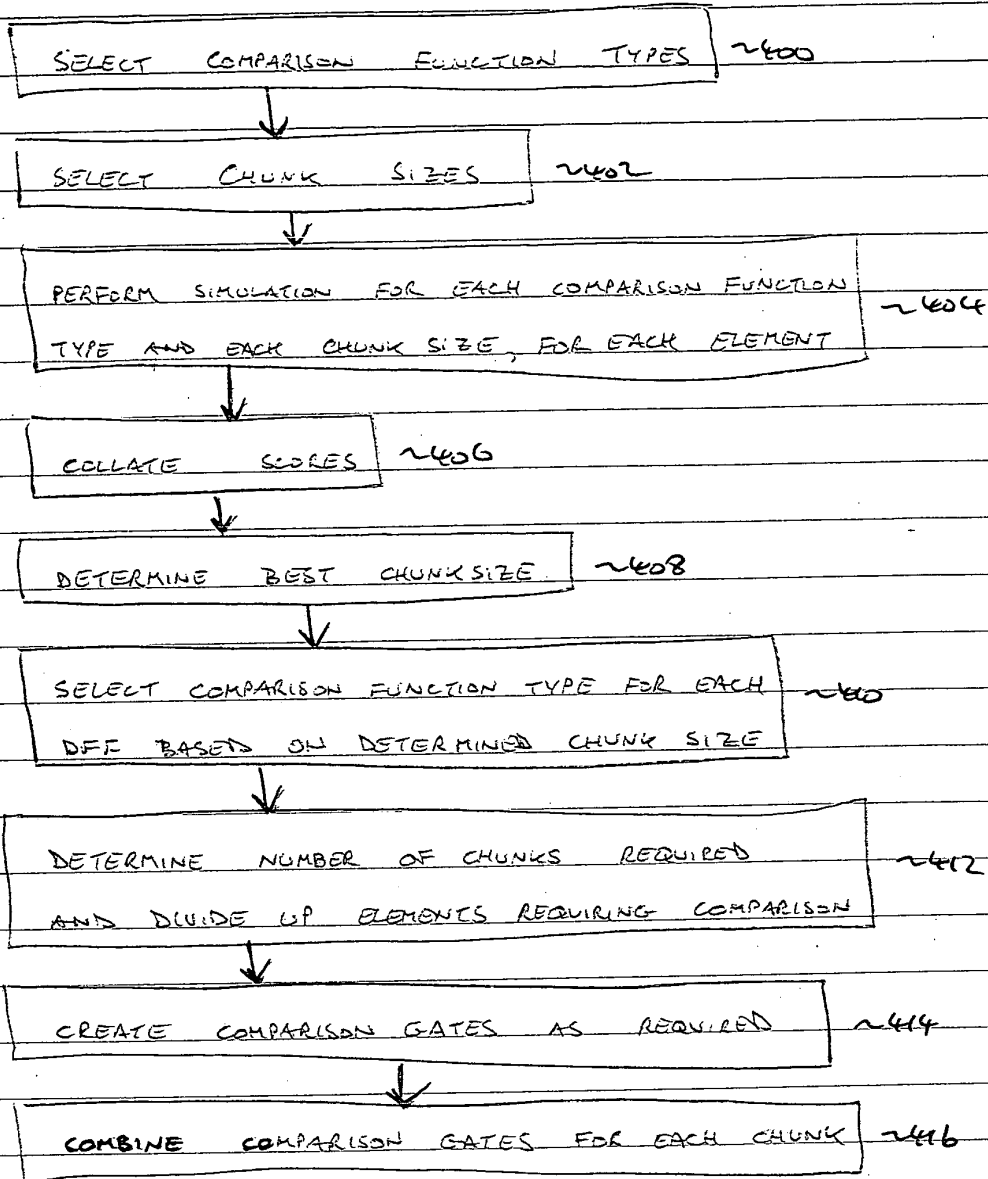 SELECT COMPARISON FUNCTION TYPES ~400
SELECT CHUNK SIZES ~402
PERFORM SIMULATION FOR EACH COMPARISON FUNCTION
~404
TYPE AND EACH CHUNK SIZE, FOR EACH ELEMENT
COLLATE SCORES ~406
DETERMINE BEST CHUNKSIZE ~408
SELECT COMPARISON FUNCTION TYPE FOR EACH ~410
DFF BASED ON DETERMINED CHUNK SIZE
DETERMINE NUMBER OF CHUNKS REQUIRED ~412
AND DIVIDE UP ELEMENTS REQUIRING COMPARISON
CREATE COMPARISON GATES AS REQUIRED ~414
COMBINE COMPARISON GATES FOR EACH CHUNK ~416